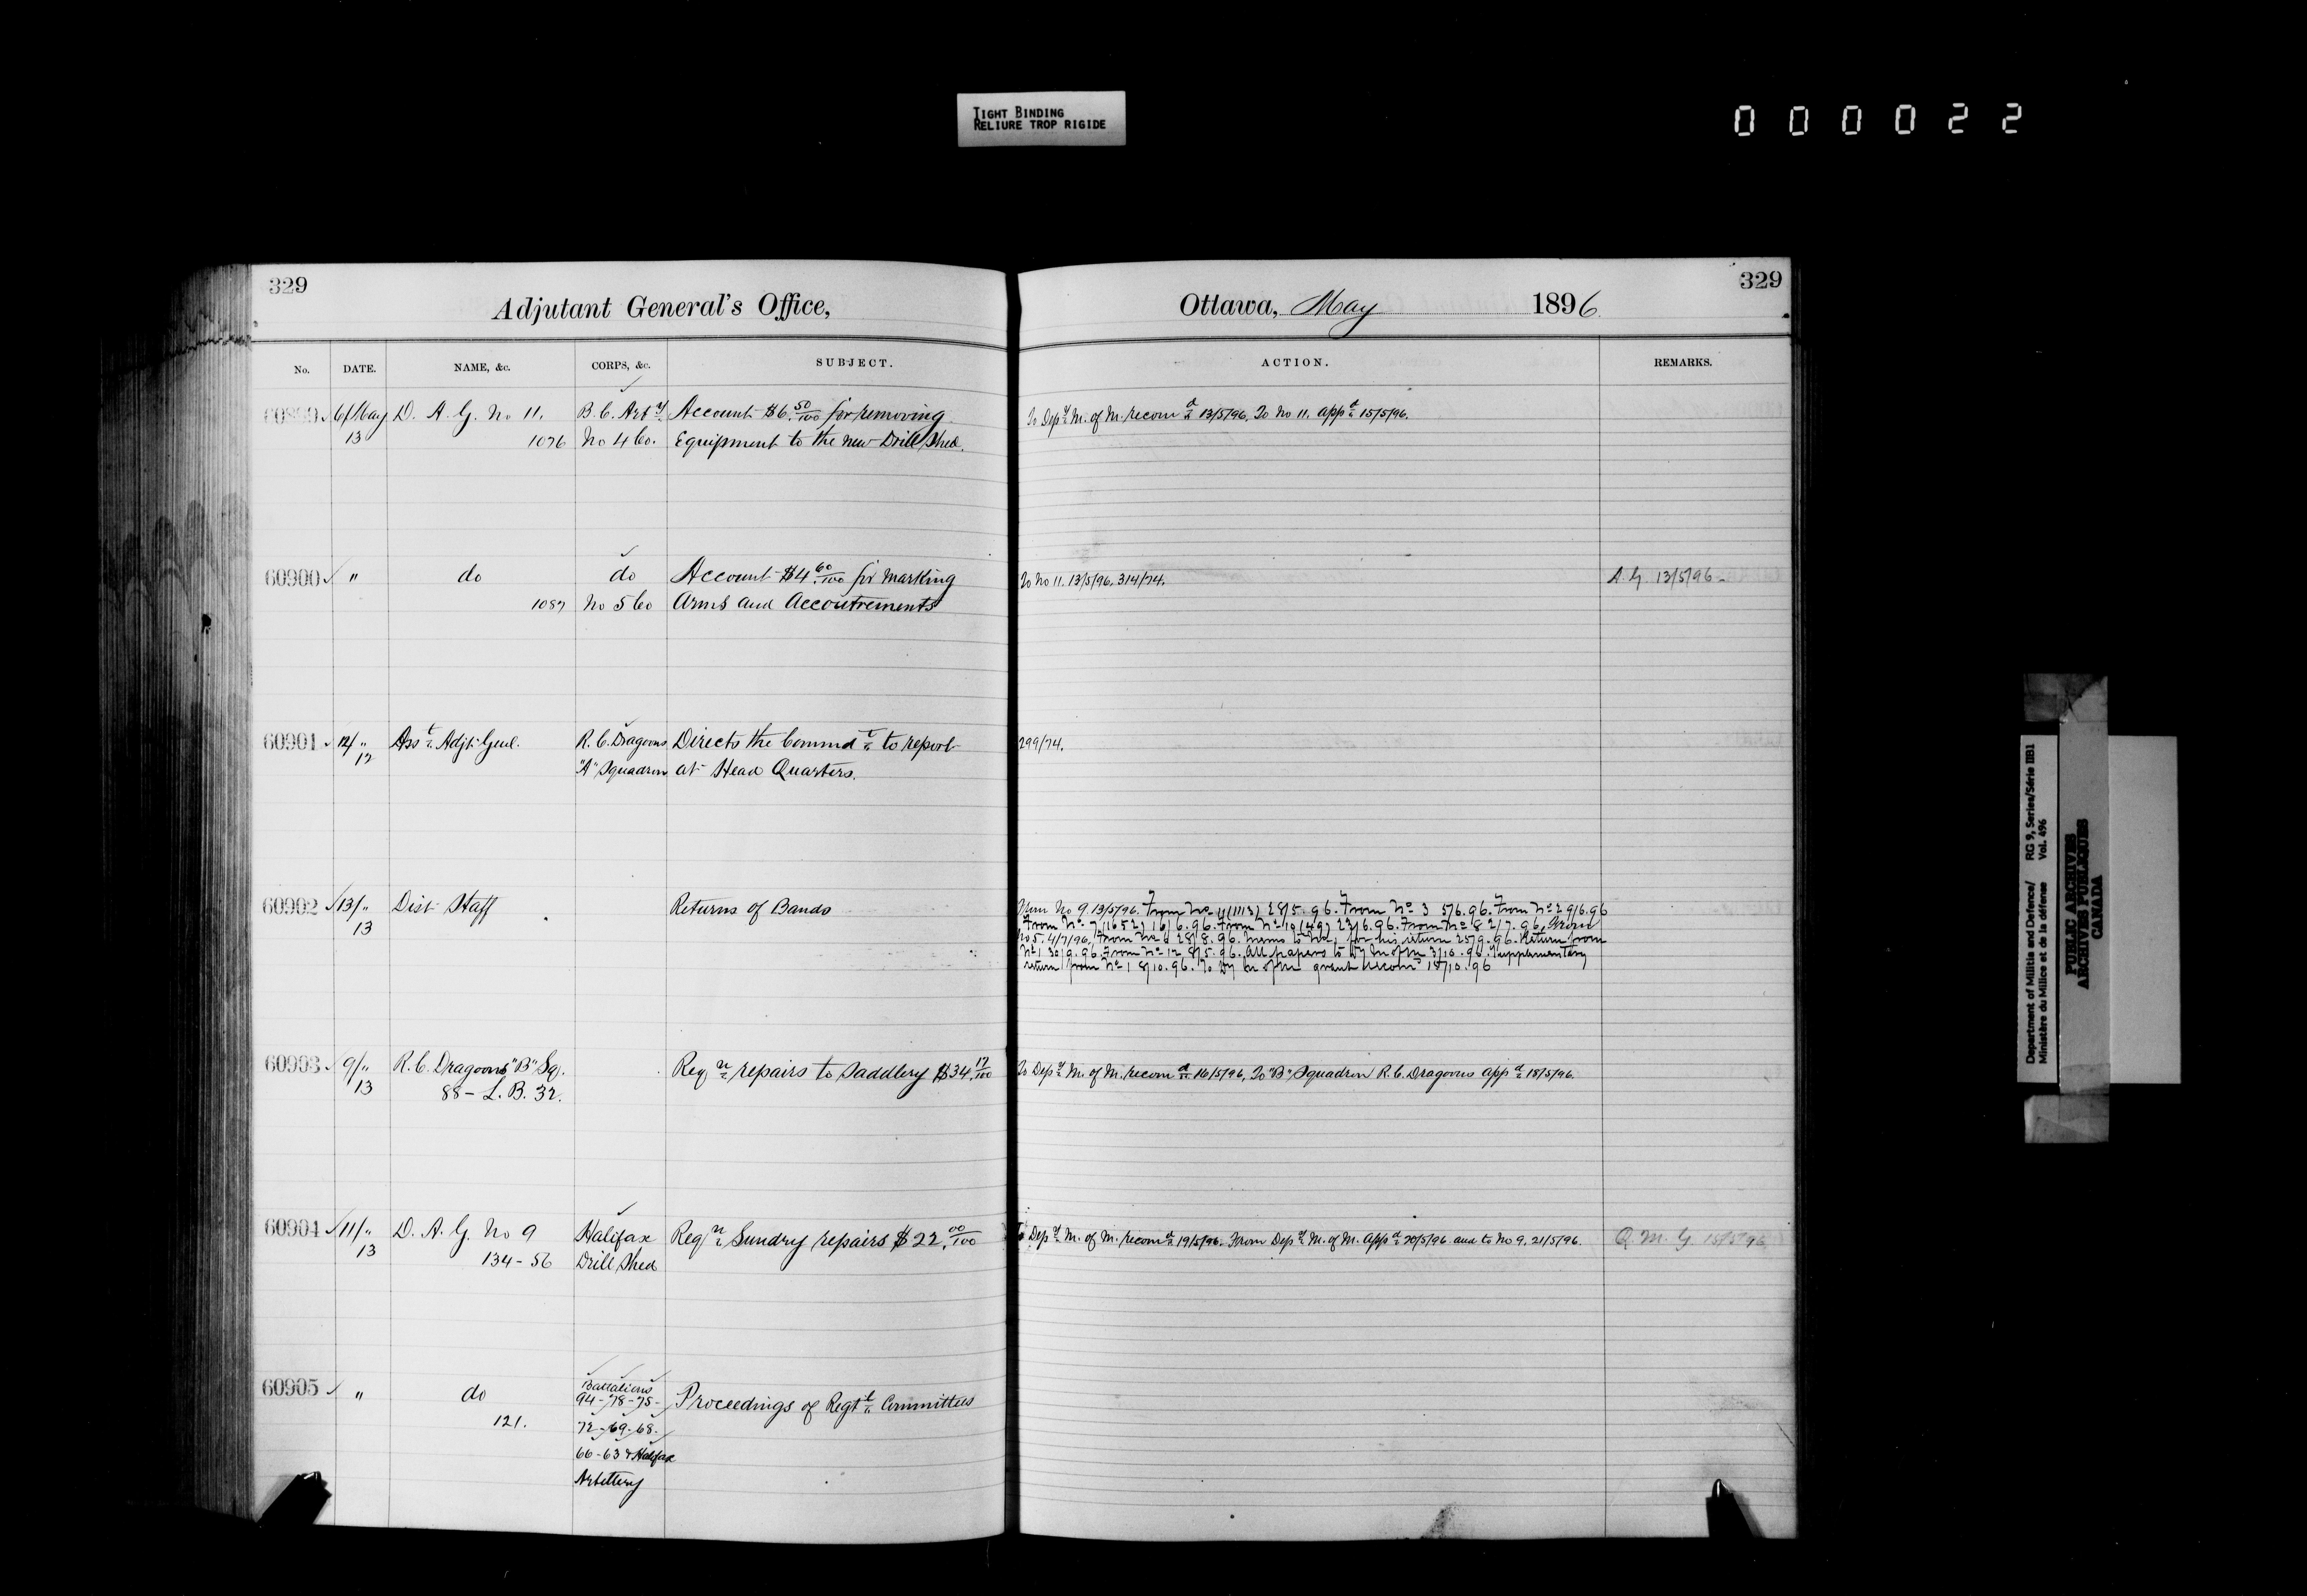 TIGHT BINDING
RELIURE TROP RIGIDE
000022
329
Adjutant General's Office,
No. DATE. NAME, &c. CORPS, &c. SUBJECT.
60899 6/May D. A. G. No 11, B.C. Arty Account $6.50/100 for removing
13 1076 No 4 Co. Equipment to the new Drill Shed.
60900 " do do Account $4.60/100 for marking
1087 No 5 Co Arms and Accoutrements
60901 12/" Asst. Adjt. Genl. R.C. Dragoons Directs the Commdt to report
12 "A" Squadron at Head Quarters.
60902 13/" Dist Staff Returns of Bands
13
60903 9/" R.C. Dragoons "B" Sq. Reqn repairs to Saddlery $34.17/100
13 88 - L.B. 32.
60904 11/" D. A. G. No 9 Halifax Reqn Sundry repairs $22.00/100
13 134-56 Drill Shed
60905 " do Battalions
94-78-75- Proceedings of Regtl Committees
121. 72-69-68-
66-63 & Halifax
Artillery
329
Ottawa, May 1896
ACTION. REMARKS.
To Depy M. of M. recomd 13/5/96. To No 11. appd 15/5/96.
To No 11. 13/5/96. 314/74. A.G. 13/5/96
299/74.
From No 9. 13/5/96. From No 11 (1113) 28/5.96. From No 3 5/6.96. From No 2 9/6.96
From No 7 (1652) 16/6.96. From No 10 (149) 23/6.96. From No 8 2/7.96. From
No 5. 4/7/96. From No 6 28/8.96. Memo to No 1 for his return 25/9.96. Return from
No 1 30/9.96. From No 12 8/5.96. All papers to Dy M of M 3/10.96. Supplementary
return from No 1 8/10.96. To Dy M of M grant recomd 15/10.96
To Depy M. of M. recomd 16/5/96. To "B" Squadron R.C. Dragoons appd 18/5/96.
To Depy M. of M. recomd 19/5/96. From Depy M. of M. appd 20/5/96 and to No 9. 21/5/96. Q.M.G 18/5/96
Department of Militia and Defence/ RG 9, Series/Série IIB1
Ministère du Milice et de la défense Vol. 496
PUBLIC ARCHIVES
ARCHIVES PUBLIQUES
CANADA